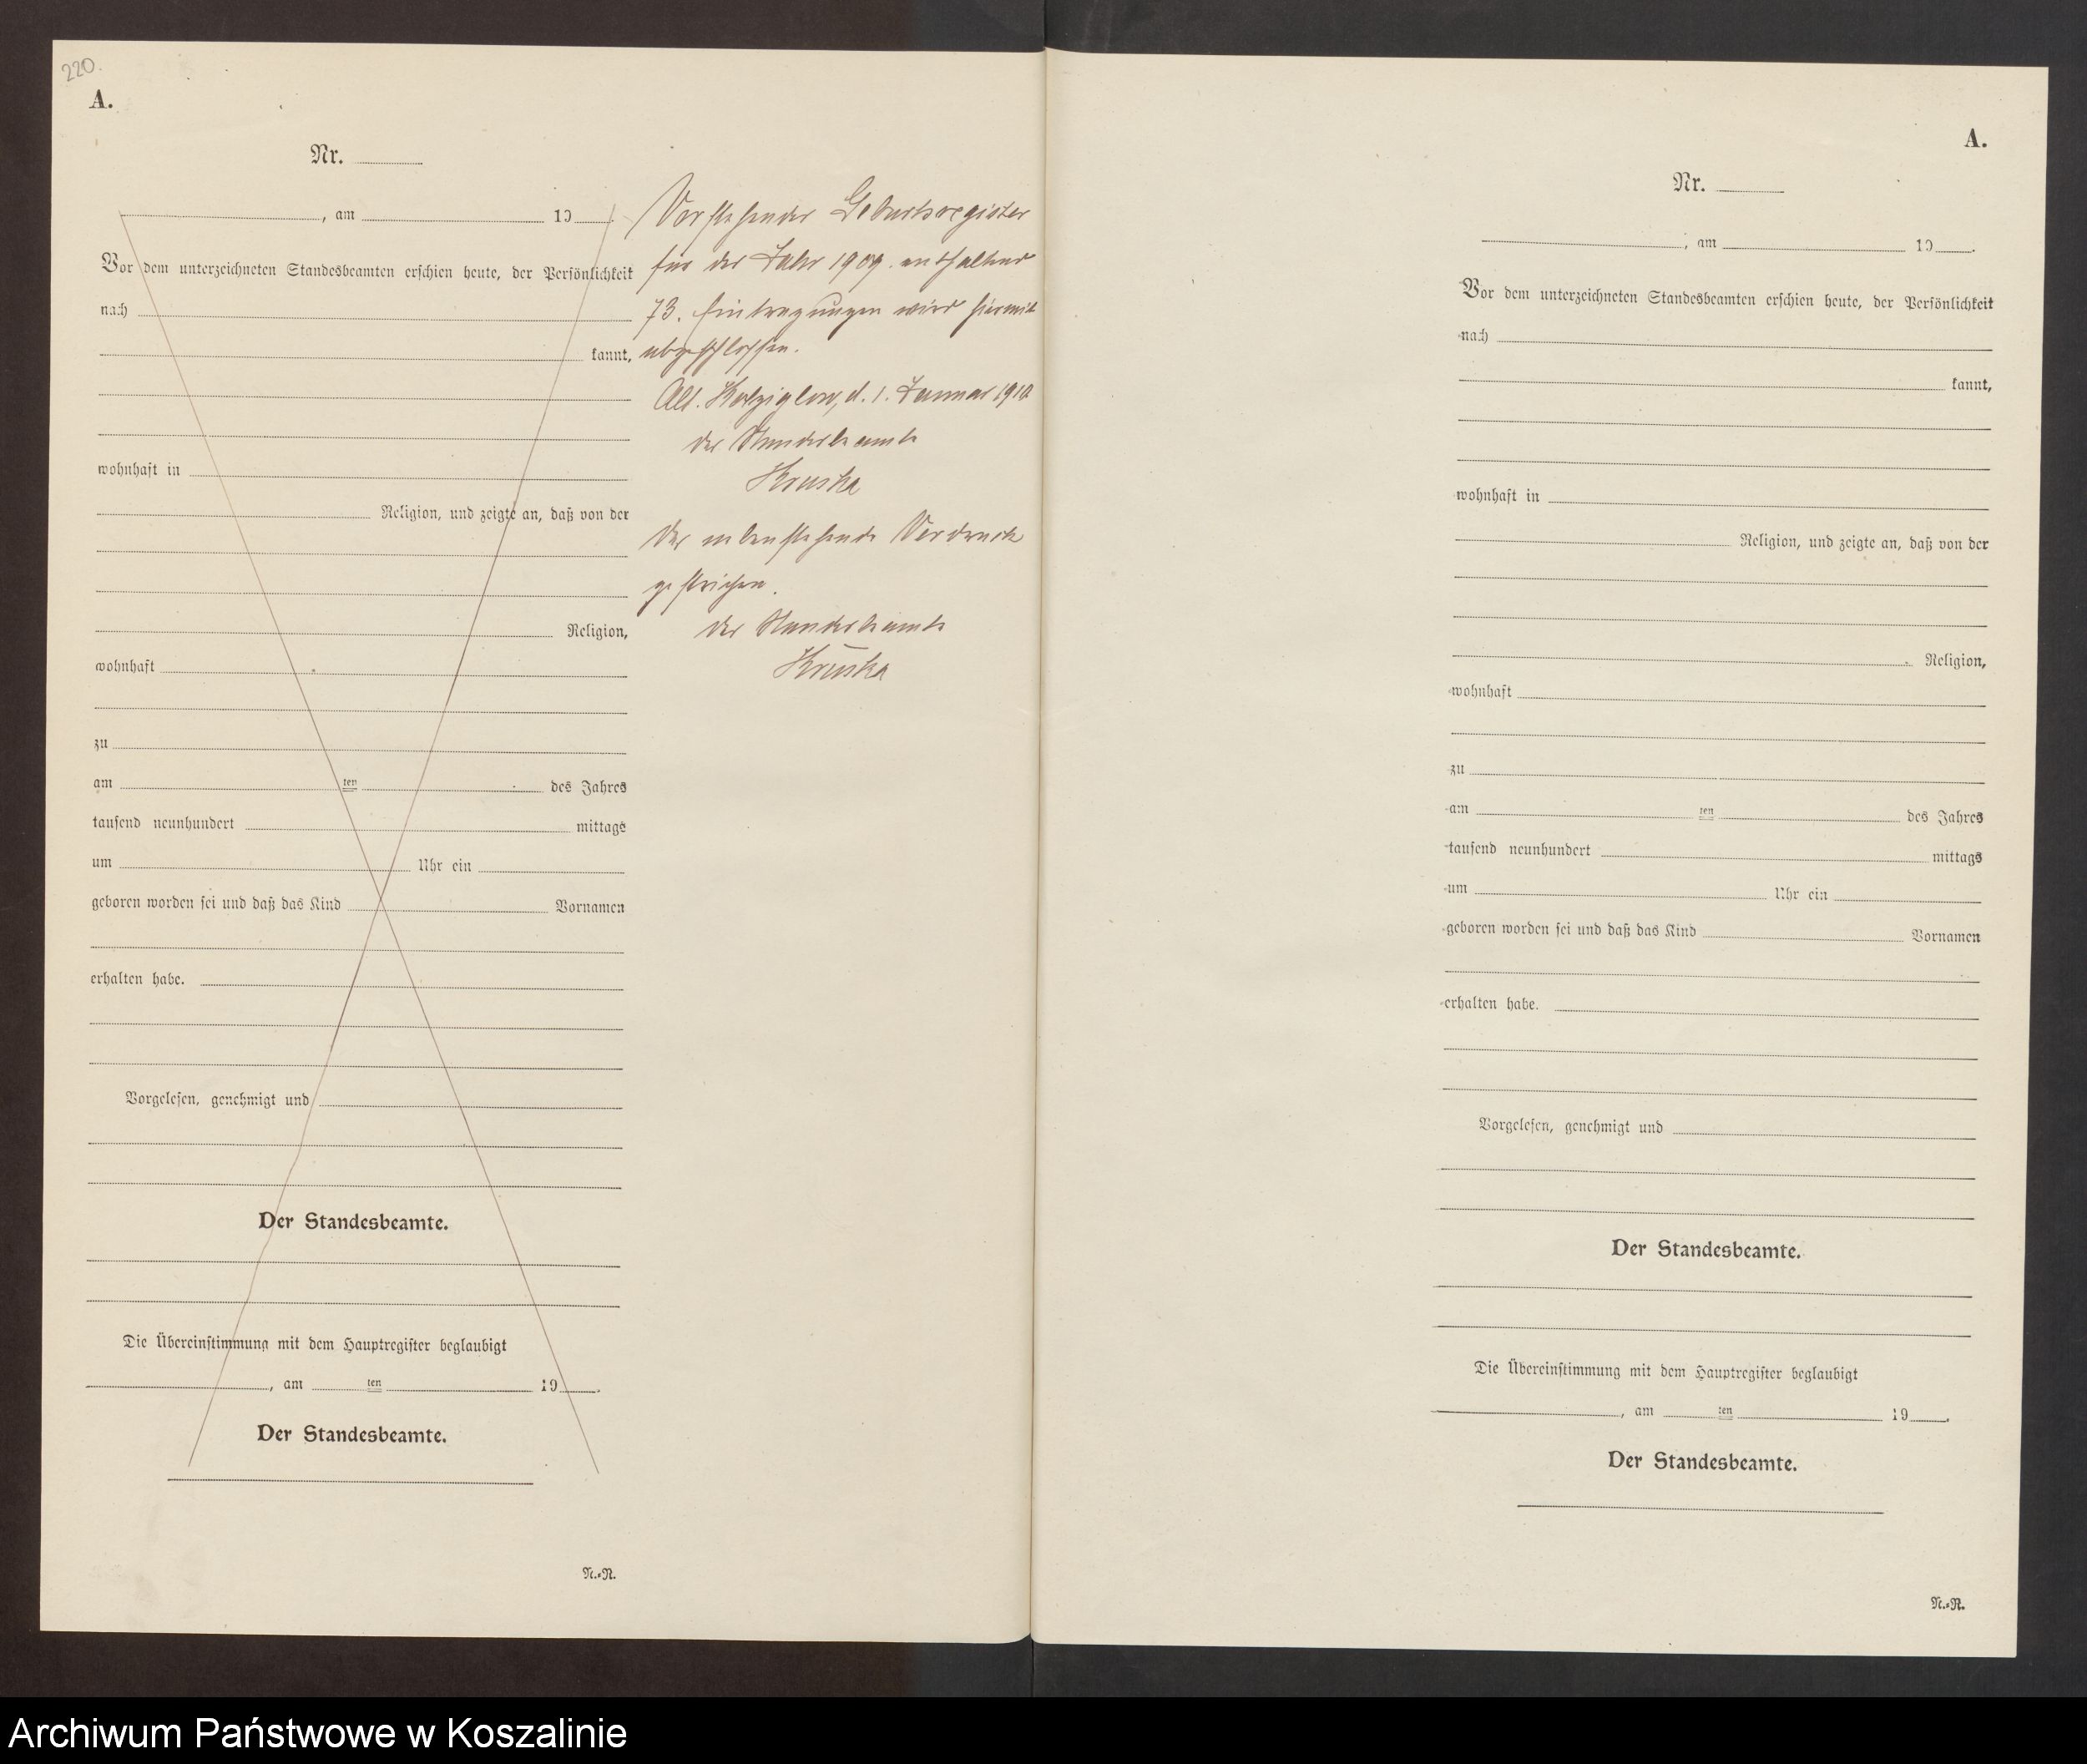 220.
A.
Nr.
, am 19
Vor dem unterzeichneten Standesbeamten erschien heute, der Persönlichkeit
nach
kannt,
wohnhaft in
Religion, und zeigte an, daß von der
Religion,
wohnhaft
zu
am ten des Jahres
tausend neunhundert mittags
um Uhr ein
geboren worden sei und daß das Kind Vornamen
erhalten habe.
Vorgelesen, genehmigt und
Der Standesbeamte.
Die Übereinstimmung mit dem Hauptregister beglaubigt
, am ten 19 .
Der Standesbeamte.
N.-R.
Vorstehender Geburtsregister
für das Jahr 1909. enthaltend
73. Eintragungen wird hiermit
abgeschlossen.
Alt. Kolziglow, d. 1. Januar 1910
der Standesbeamte
Kruska
Der nebenstehende Vordruck
gestrichen.
der Standesbeamte
Kruska
A.
Nr.
, am 19 .
Vor dem unterzeichneten Standesbeamten erschien heute, der Persönlichkeit
nach
kannt,
wohnhaft in
Religion, und zeigte an, daß von der
Religion,
wohnhaft
zu
am ten des Jahres
tausend neunhundert mittags
um Uhr ein
geboren worden sei und daß das Kind Vornamen
erhalten habe.
Vorgelesen, genehmigt und
Der Standesbeamte.
Die Übereinstimmung mit dem Hauptregister beglaubigt
, am ten 19 .
Der Standesbeamte.
N.-R.
Archiwum Państwowe w Koszalinie